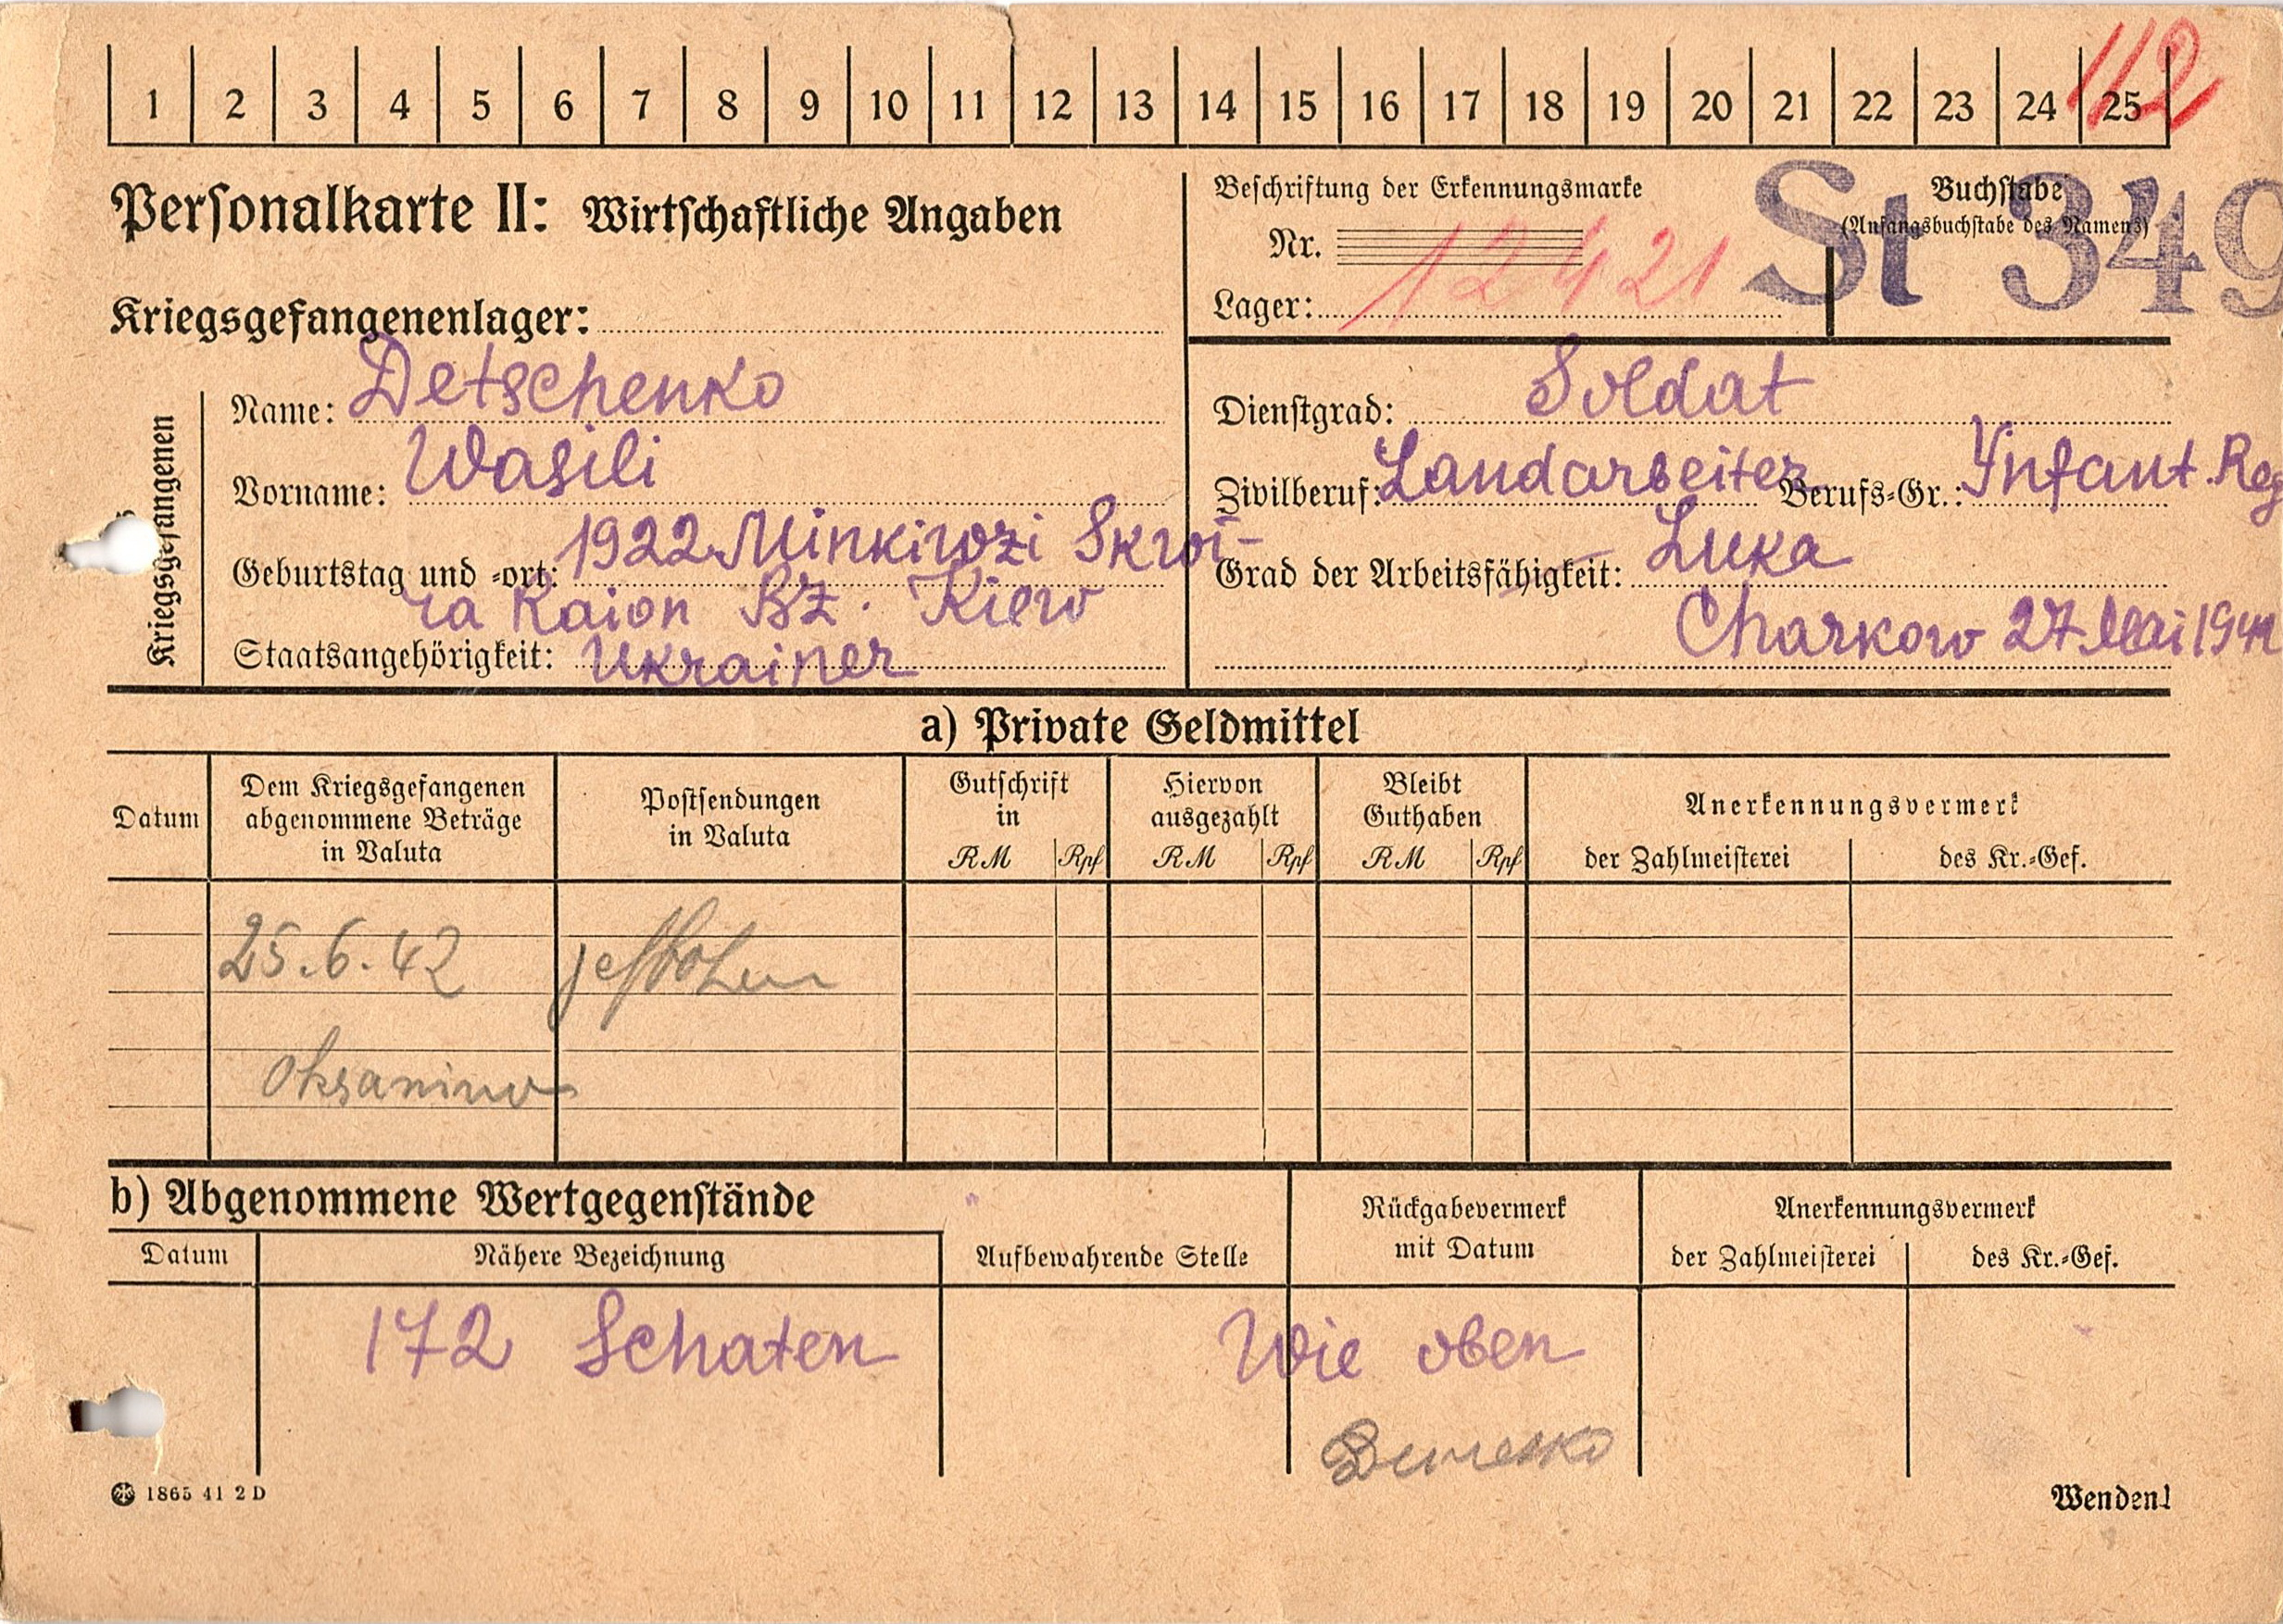 112
1 2 3 4 5 6 7 8 9 10 11 12 13 14 15 16 17 18 19 20 21 22 23 24 25
Personalkarte II: Wirtschaftliche Angaben
Kriegsgefangenenlager:
Beschriftung der Erkennungsmarke
Nr.
12421
Lager:
St 349
Buchstabe
(Anfangsbuchstabe des Namens)
Kriegsgefangenen
Name: Detschenko
Vorname: Wasili
Geburtstag und -ort: 1922 Minkiwzi Skwi-
ra Raion BZ. Kiew
Staatsangehörigkeit: Ukrainer
Dienstgrad: Soldat
Zivilberuf: Landarbeiter Berufs-Gr.: Ynfant. Reg
Grad der Arbeitsfähigkeit: Luka
Charkow 27 Mai 1942
a) Private Geldmittel
Datum
Dem Kriegsgefangenen
abgenommene Beträge
in Valuta
Postsendungen
in Valuta
Gutschrift
in
RM Rpf
Hiervon
ausgezahlt
RM Rpf
Bleibt
Guthaben
RM Rpf
Anerkennungsvermerk
der Zahlmeisterei
des Kr.-Gef.
25.6.42
Oksanino
b) Abgenommene Wertgegenstände
Datum
Nähere Bezeichnung
Aufbewahrende Stelle
Rückgabevermerk
mit Datum
Anerkennungsvermerk
der Zahlmeisterei
des Kr.-Gef.
172 Schaten
Wie oben
1865 41 2 D
Wenden!